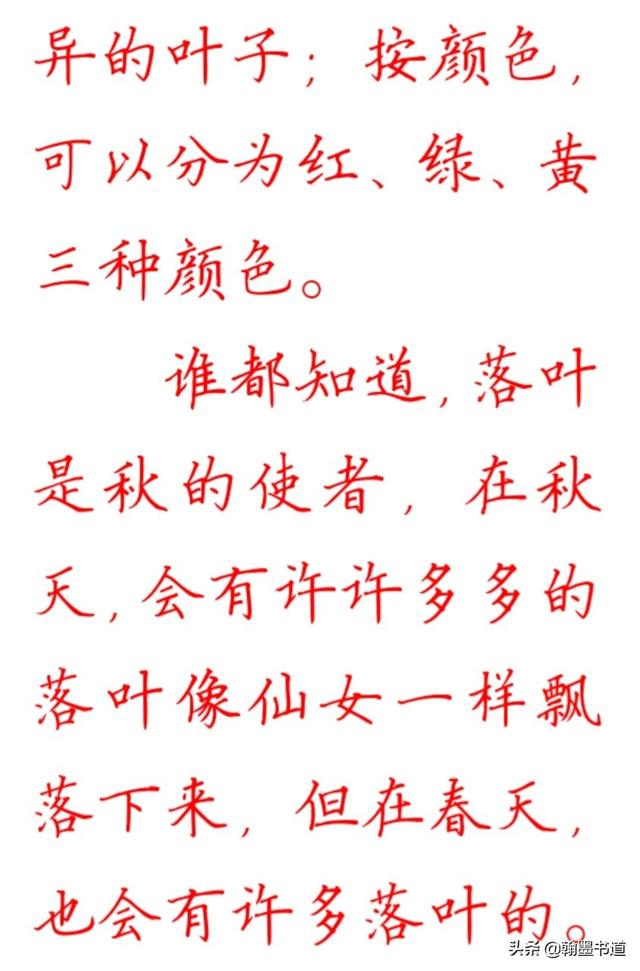 异的叶子；按颜色，
可以分为红、绿、黄
三种颜色。
谁都知道，落叶
是秋的使者，在秋
天，会有许许多多的
落叶像仙女一样飘
落下来，但在春天，
也会有许多落叶的。
头条 @翰墨书道